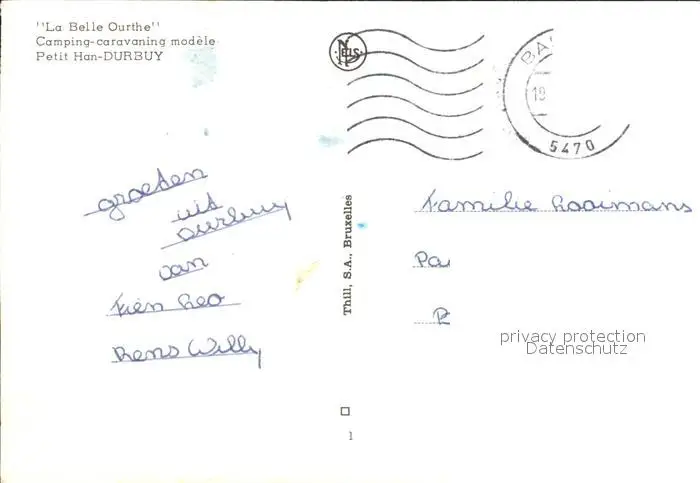 "La Belle Ourthe"
Camping-caravaning modèle
Petit Han-DURBUY
NELS
BA
18
5470
groeten
uit
Durbuy
van
Fien Leo
Rens Willy
Thill, S.A., Bruxelles
Familie Looimans
Pa
privacy protection
Datenschutz
1